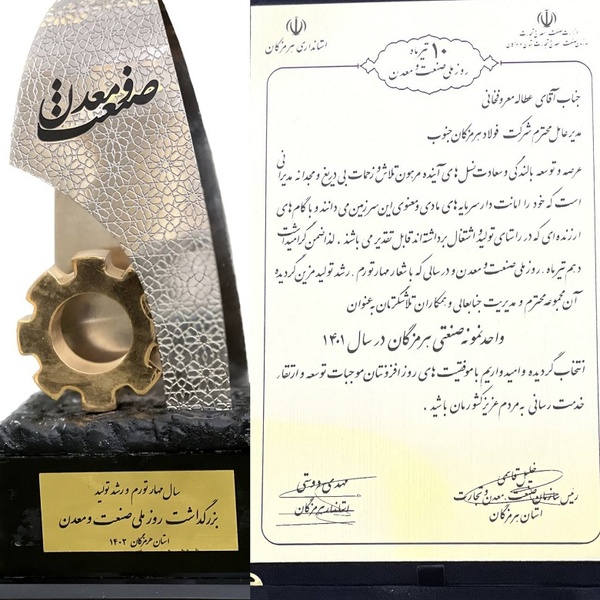 صنعت و معدن
سال مهار تورم و رشد تولید
بزرگداشت روز ملی صنعت و معدن
استان هرمزگان ۱۴۰۲
استانداری هرمزگان
۱۰ تیرماه
روز ملی صنعت و معدن
جناب آقای عطاله معروفخانی
مدیرعامل محترم شرکت فولاد هرمزگان جنوب
عرصه و توسعه بالندگی و سعادت نسل های آینده مرهون تلاش و زحمات بی دریغ و مجدانه مدیرانی
است که خود را امانت دار سرمایه های مادی و معنوی این سرزمین می دانند و با گام های
ارزنده ای که در راستای تولید و اشتغال برداشته اند قابل تقدیر می باشند . لذا ضمن گرامیداشت
دهم تیرماه ، روز ملی صنعت و معدن و در سالی که با شعار مهار تورم ، رشد تولید مزین گردیده
آن مجموعه محترم و مدیریت جنابعالی و همکاران تلاشگرتان به عنوان
واحد نمونه صنعتی هرمزگان در سال ۱۴۰۱
انتخاب گردیده و امیدواریم با موفقیت های روز افزونتان موجبات توسعه و ارتقاء
خدمت رسانی به مردم عزیز کشورمان باشید .
خلیل قاسمی
رئیس سازمان صنعت، معدن و تجارت
استان هرمزگان
مهدی دوستی
استاندار هرمزگان